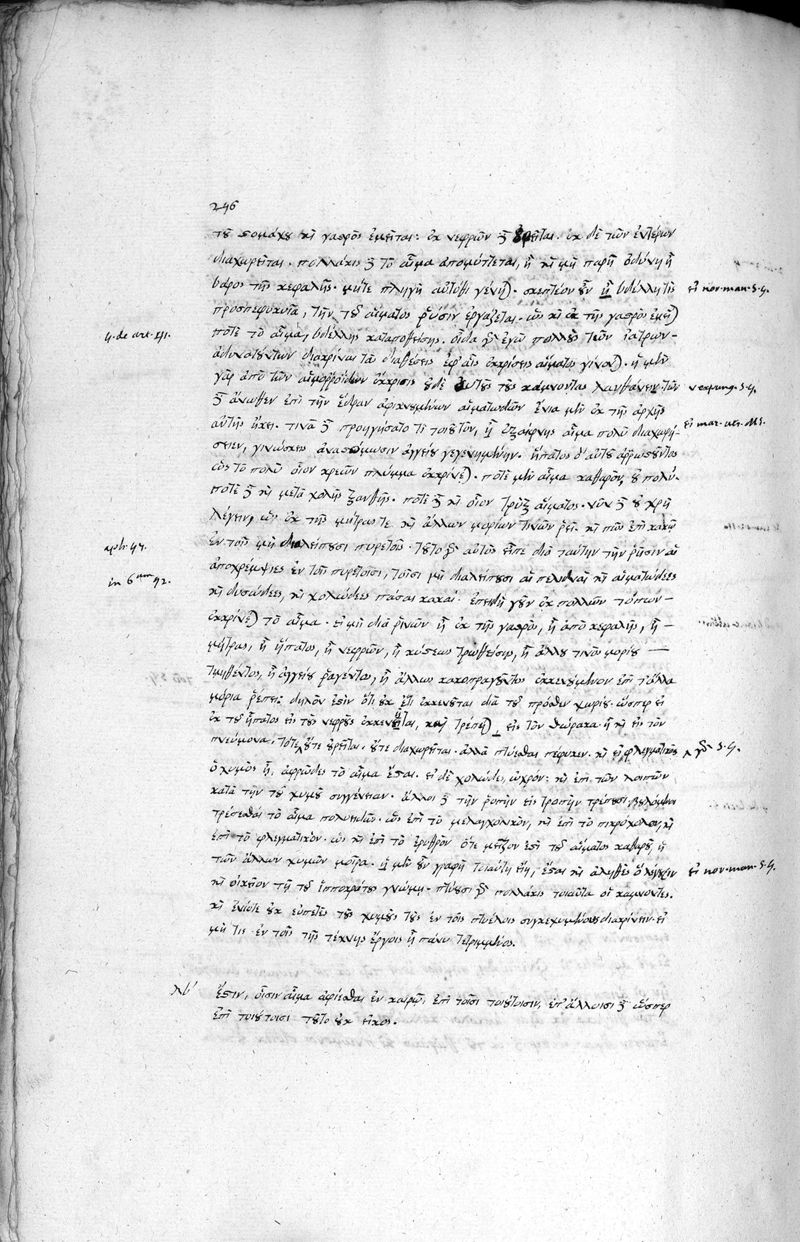 246
τοῦ στομάχου καὶ γαστρὸς ἐμεῖται· ἐκ νεφρῶν δὲ οὐρεῖται. ἐκ δὲ τῶν ἐντέρων
διαχωρεῖται. πολλάκις δὲ τὸ αἷμα ἀπομύττεται, ἢ καὶ μὴ παρῇ ὀδύνη ἢ
βάρος τῆς κεφαλῆς. μήτε πληγὴ αὐτόθι γένηται. σκεπτέον οὖν ἢ βδέλλη τις
εἰ nov. man. S. G.
προσπεφυκυῖα, τὴν τοῦ αἵματος ῥύσιν ἐργάζεται. ὡς καὶ ἐκ τῆς γαστρὸς ἐμεῖται
4. de art.
ποτὲ τὸ αἷμα, βδέλλης καταποθείσης. οἶδα γὰρ ἐγὼ πολλοὺς τῶν ἰατρῶν
ἀδυνατούντων διακρῖναι τὰς διαθέσεις ἐφ' αἷς ἐκκρίσεις αἵματος γίνονται. ἡ μὲν
γὰρ ἀπὸ τῶν αἱμορροΐδων ἔκκρισις οὐδὲ αὐτοὺς τοὺς κάμνοντας λανθάνει· τῶν
S. G.
δὲ ἄνωθεν ἐπὶ τὴν ἕδραν ἀφικνουμένων αἱματωδῶν ἔνια μὲν ἐκ τῆς ἀρχῆς
αὐτῆς ἥκει. τινὰ δὲ προηγήσατό τι τοιοῦτον, ἢ ἐξαίφνης αἷμα πολὺ διαχωρή-
σειεν, γινώσκεις ἀναστόμωσιν ἀγγείου γεγενημένην. ἥπατος δ' αὐτοῦ ἀρρωστοῦντος
ὡς τὸ πολὺ οἷον κρεῶν πλύμμα ἐκκρίνεται. ποτὲ μὲν αἷμα καθαρὸν, οὐ πολύ.
ποτὲ δὲ καὶ μετὰ χολῆς ξανθῆς. ποτὲ δὲ καὶ οἷον τρὺξ αἵματος. νῦν δὲ οὐ χρὴ
λέγειν, ὡς ἐκ τῆς μήτρας τε καὶ ἄλλων μορίων τινῶν ῥεῖ. καὶ πῶς ἐπὶ κακῷ
aph. 47.
ἐν τοῖς μὴ διαλείπουσι πυρετοῖς. τοῦτο γὰρ αὐτὸς εἶπε διὰ ταύτην τὴν ῥῆσιν αἱ
ἀποχρέμψιες ἐν τοῖς πυρετοῖσι, τοῖσι μὴ διαλείπουσι αἱ πελιδναὶ καὶ αἱματώδεες
in 6um 42.
καὶ δυσώδεες, καὶ χολώδεες πᾶσαι κακαί. ἐπειδὴ γοῦν ἐκ πολλῶν τόπων
ἐκκρίνεται τὸ αἷμα. εἰ μὴ διὰ ῥινῶν ἢ ἐκ τῆς γαστρὸς, ἢ ἀπὸ κεφαλῆς, ἢ
μήτρας, ἢ ἥπατος, ἢ νεφρῶν, ἢ κύστεως τρωθείσης, ἢ ἄλλου τινὸς μορίου
τμηθέντος, ἢ ἀγγείου ῥαγέντος, ἢ ἄλλως κακοπραγοῦντος ἐκκενούμενον ἐπὶ τἆλλα
μόρια ῥέπει· δηλόν ἐστιν ὅτι οὐκ ἔτι ἐκκενοῦται διὰ τοῦ πρόσθεν χωρίου. ὥσπερ εἰ
ἐκ τοῦ ἥπατος εἰς τοὺς νεφροὺς ἐκκενοῦται, καὶ τρέπηται εἰς τὸν θώρακα ἢ καὶ εἰς τὸν
πνεύμονα. τότε οὔτε οὐρεῖται. οὔτε διαχωρεῖται. ἀλλὰ πτύεσθαι πέφυκεν. καὶ εἰ φλεγματικὸς
S. G.
ὁ χυμὸς ᾖ, ἀφρῶδες τὸ αἷμα ἔσται. εἰ δὲ χολώδης, ὠχρόν· καὶ ἐπὶ τῶν λοιπῶν
κατὰ τὴν τοῦ χυμοῦ συγγένειαν. ἄλλοι δὲ τὴν ῥοπὴν εἰς τροπὴν τρέπουσι, βουλόμενοι
τρέπεσθαι τὸ αἷμα πολυειδῶς. ὡς ἐπὶ τὸ μελαγχολικὸν, καὶ ἐπὶ τὸ πικρόχολον, καὶ
ἐπὶ τὸ φλεγματικόν. ὡς καὶ ἐπὶ τὸ ἐρυθρόν. ὅτε μεῖζόν ἐστι τοῦ αἵματος καθαροῦ ἡ
τῶν ἄλλων χυμῶν μοῖρα. εἰ μὲν οὖν γραφὴ τοιαύτη εἴη, ἔσται καὶ ἀληθὲς ὃ λέγουσιν
εἰ nov. man. S. G.
καὶ οἰκεῖον τῇ τοῦ ἱπποκράτους γνώμῃ. πτύουσι γὰρ πολλάκις τοιαῦτα οἱ κάμνοντες.
καὶ ἐνίοτε οὐκ εὐπετὲς τοὺς χυμοὺς τοὺς ἐν τοῖς πτυέλοις συγκεχυμένους διακρίνειν. εἰ
μή τις ἐν τοῖς τῆς τέχνης ἔργοις ᾖ πάνυ τετριμμένος.
λβ' ἔστιν, οἷσιν αἷμα ἀφίεσθαι ἐν καιρῷ, ἐπὶ τοῖσι τοιούτοισιν, ἐπ' ἄλλοισι δὲ ὥσπερ
ἐπὶ τούτοισι τοῦτο οὐκ εἰκός.